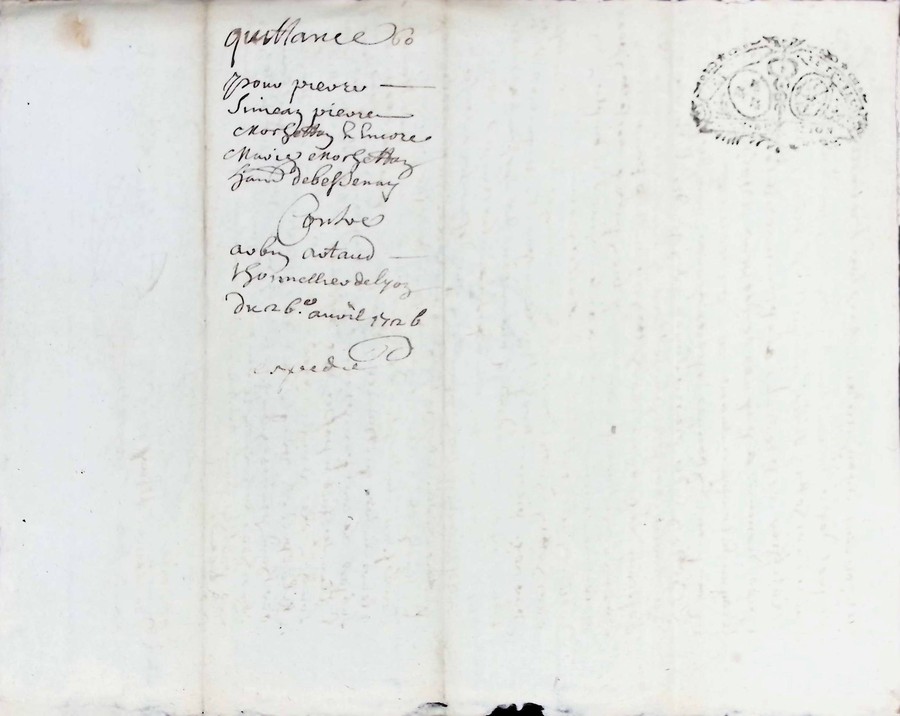 quittance 60
pour pierre
Simean pierre
Morhettoy & Encore
Marie Morhettoy
hand. de bessenay
Contre
aubin artaud
thomellier de lyon
Du 26.e avril 1726
expedie